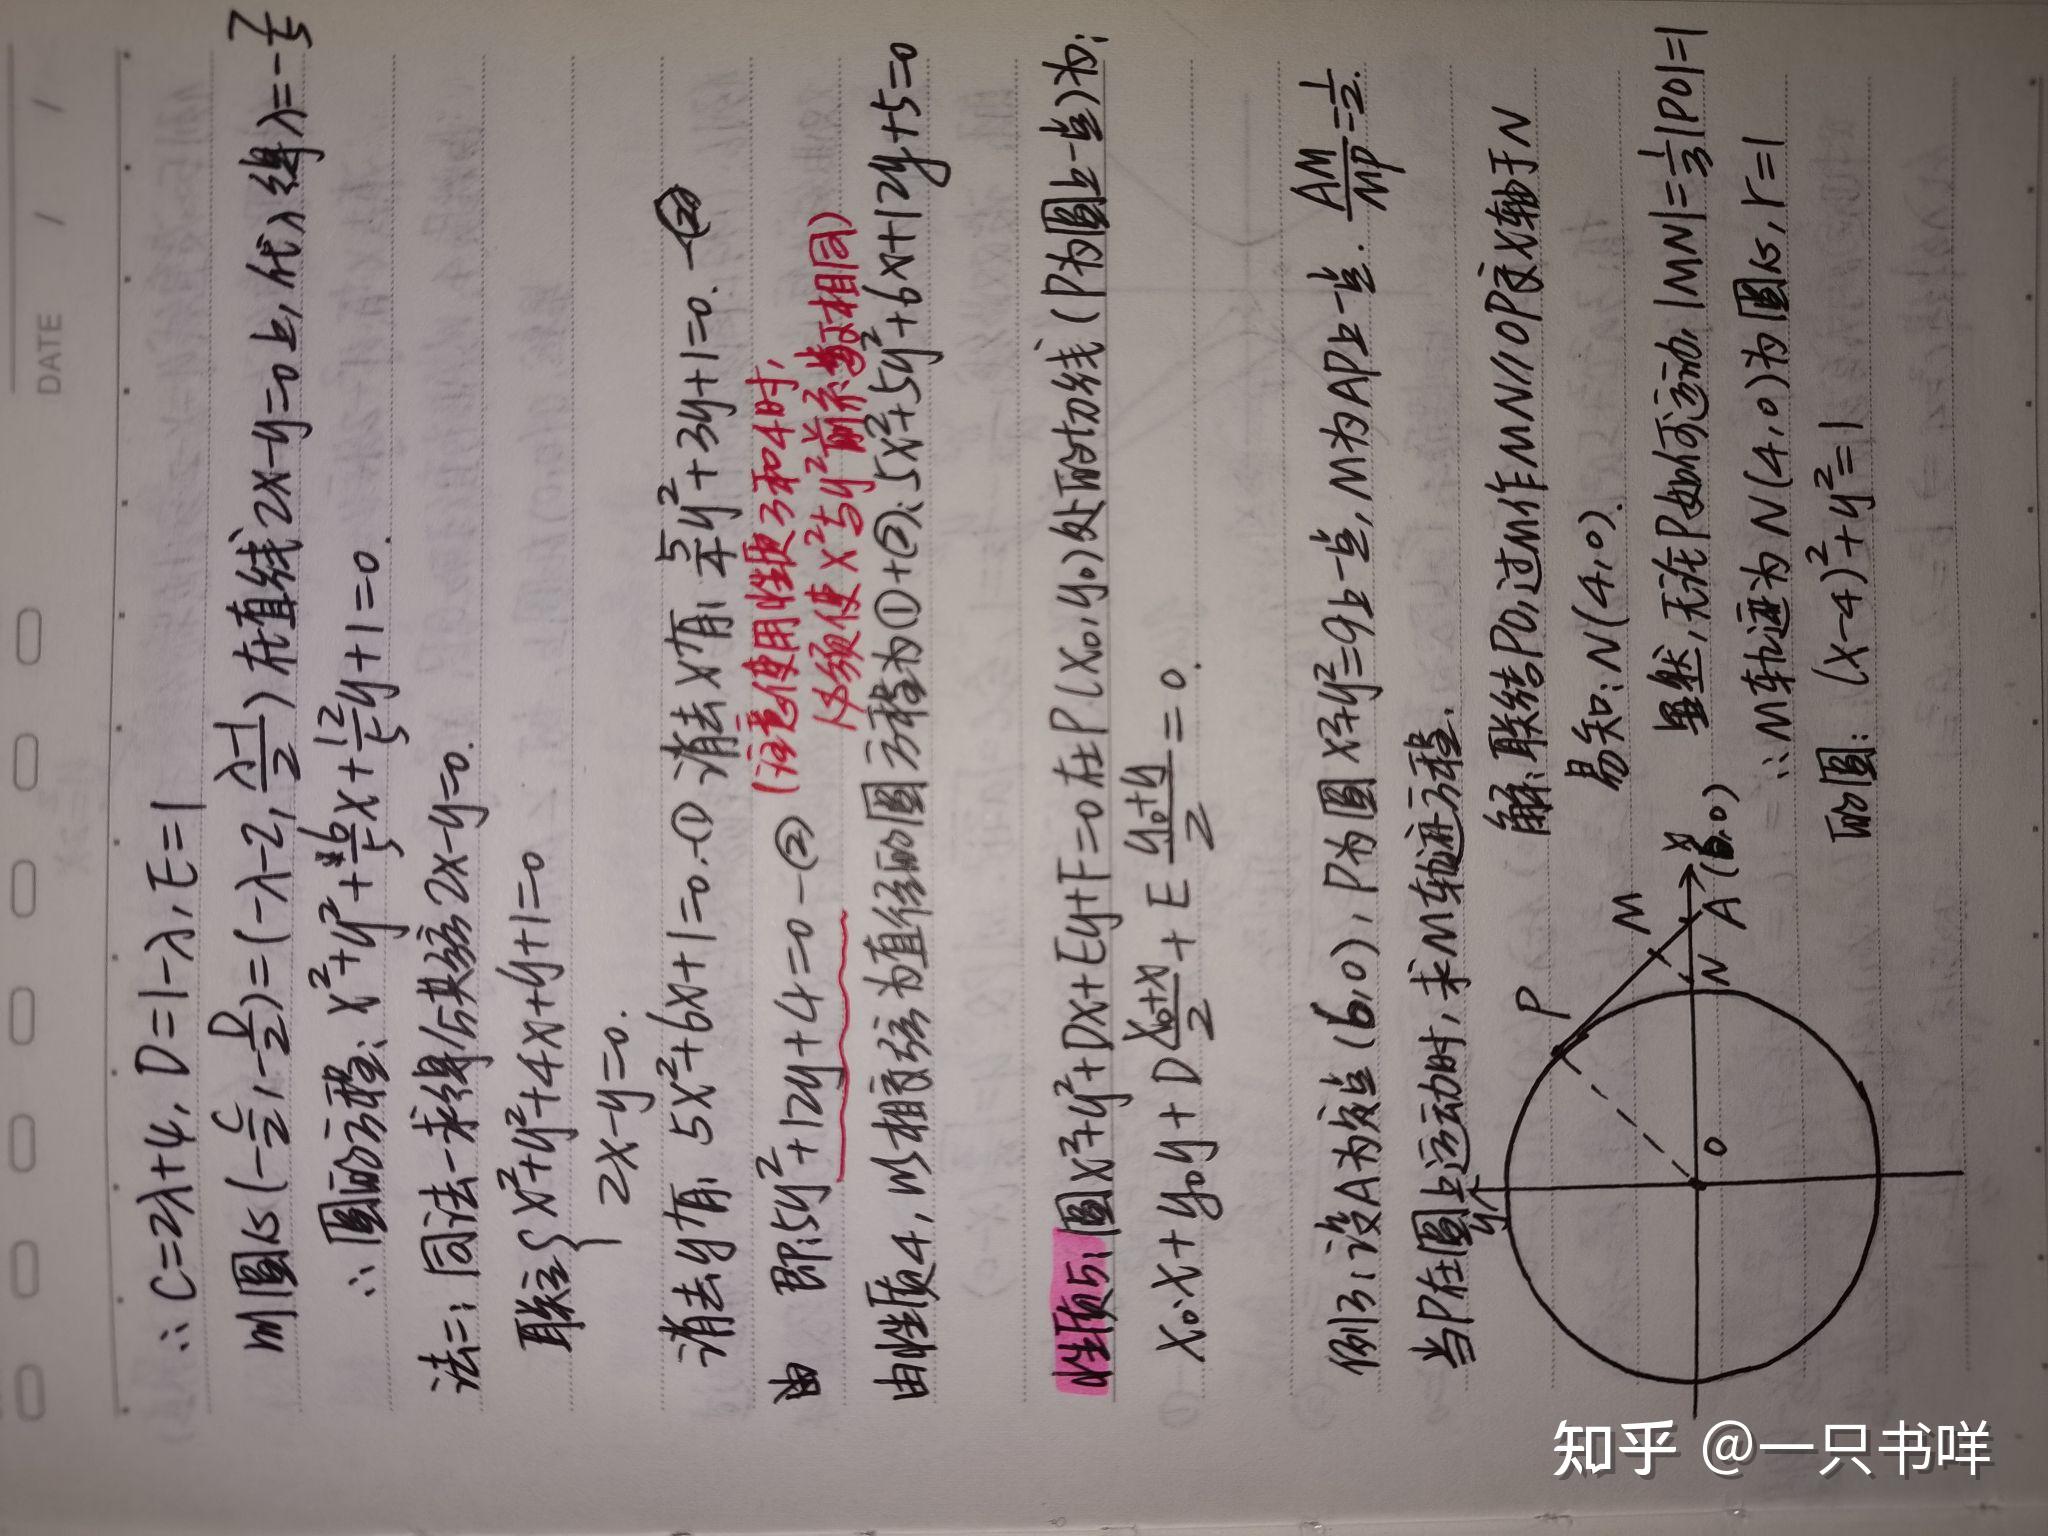 DATE / /
∴ C=2λ+4, D=1-λ, E=1
则圆心(-C/2, -D/2)=(-λ-2, (λ-1)/2)在直线2x-y=0上,代入得λ=-7/5
∴ 圆的方程: x²+y²+6/5x+12/5y+1=0.
法二: 同法一求得公共弦2x-y=0.
联立{x²+y²+4x+y+1=0
2x-y=0.
消去y有: 5x²+6x+1=0.① 消去x有: 5/4y²+3y+1=0.
即: 5y²+12y+4=0-② (注意使用性质3和4时,
必须使x²与y²前系数相同)
由性质4,以相交弦为直径的圆方程为①+②: 5x²+5y²+6x+12y+5=0
性质5: 圆x²+y²+Dx+Ey+F=0在P(x₀,y₀)处的切线(P为圆上一点)为:
x₀x+y₀y+D(x₀+x)/2+E(y₀+y)/2=0.
例3: 设A为定点(6,0), P为圆x²+y²=9上一点, M为AP上一点. AM/MP=1/2.
当P在圆上运动时, 求M轨迹方程.
解: 联结PO,过M作MN//OP交x轴于N
易知: N(4,0).
显然,无论P如何运动, |MN|=1/3|PO|=1
∴M轨迹为N(4,0)为圆心, r=1
的圆: (x-4)²+y²=1
y
P
M
O
N
A(6,0)
x
知乎 @一只书咩